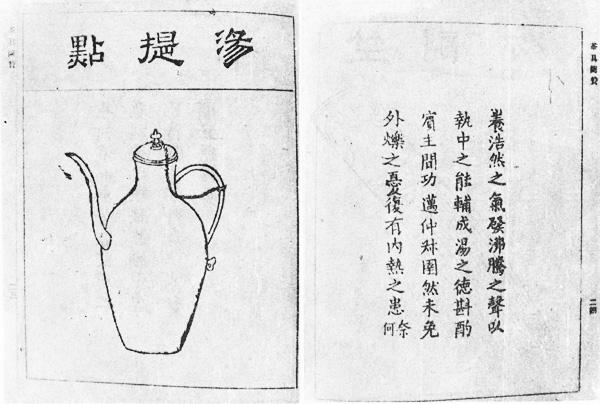 湯提點
茶具圖贊
養浩然之氣發沸騰之聲以
執中之能輔成湯之德斟酌
賓主間功邁仲叔圉然未免
外爍之憂復有內熱之患奈何
茶具圖贊